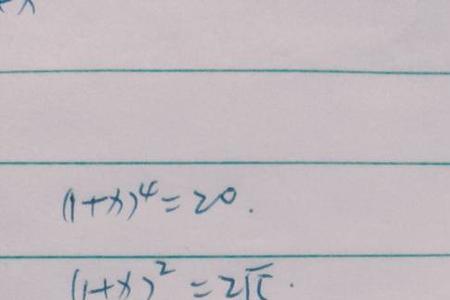 +x
(1+x)⁴=20.
(1+x)²=2√5.